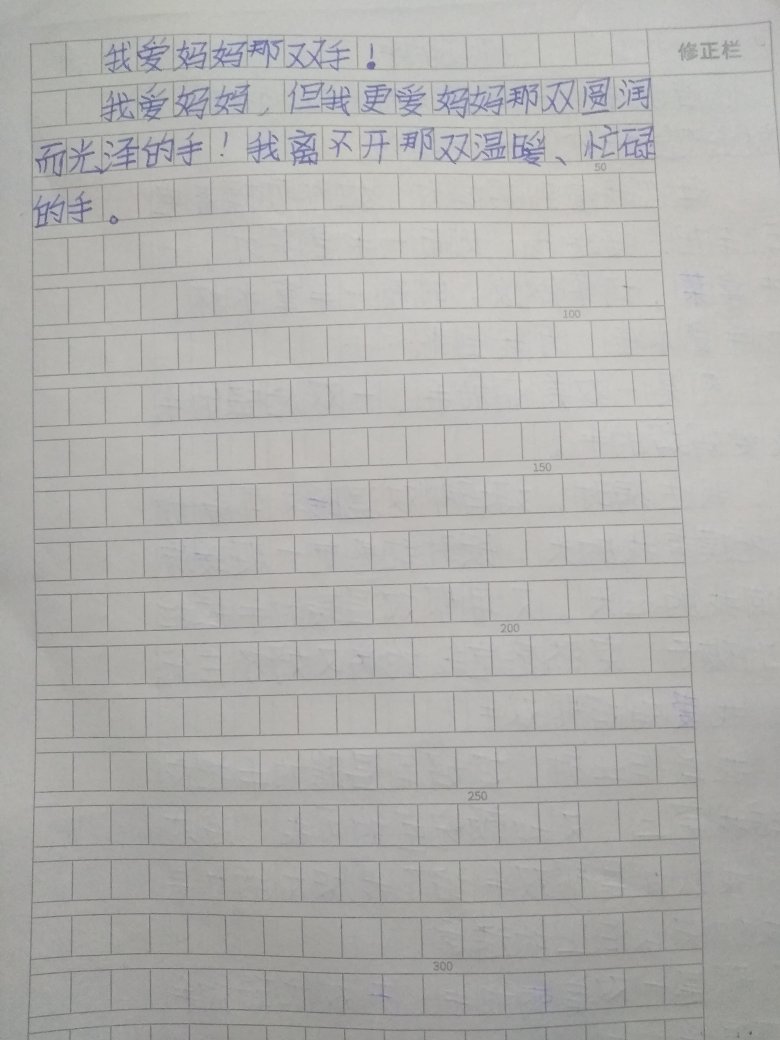 我爱妈妈那双手！
修正栏
我爱妈妈，但我更爱妈妈那双圆润
而光泽的手！我离不开那双温暖、忙碌
50
的手。
100
150
200
250
300